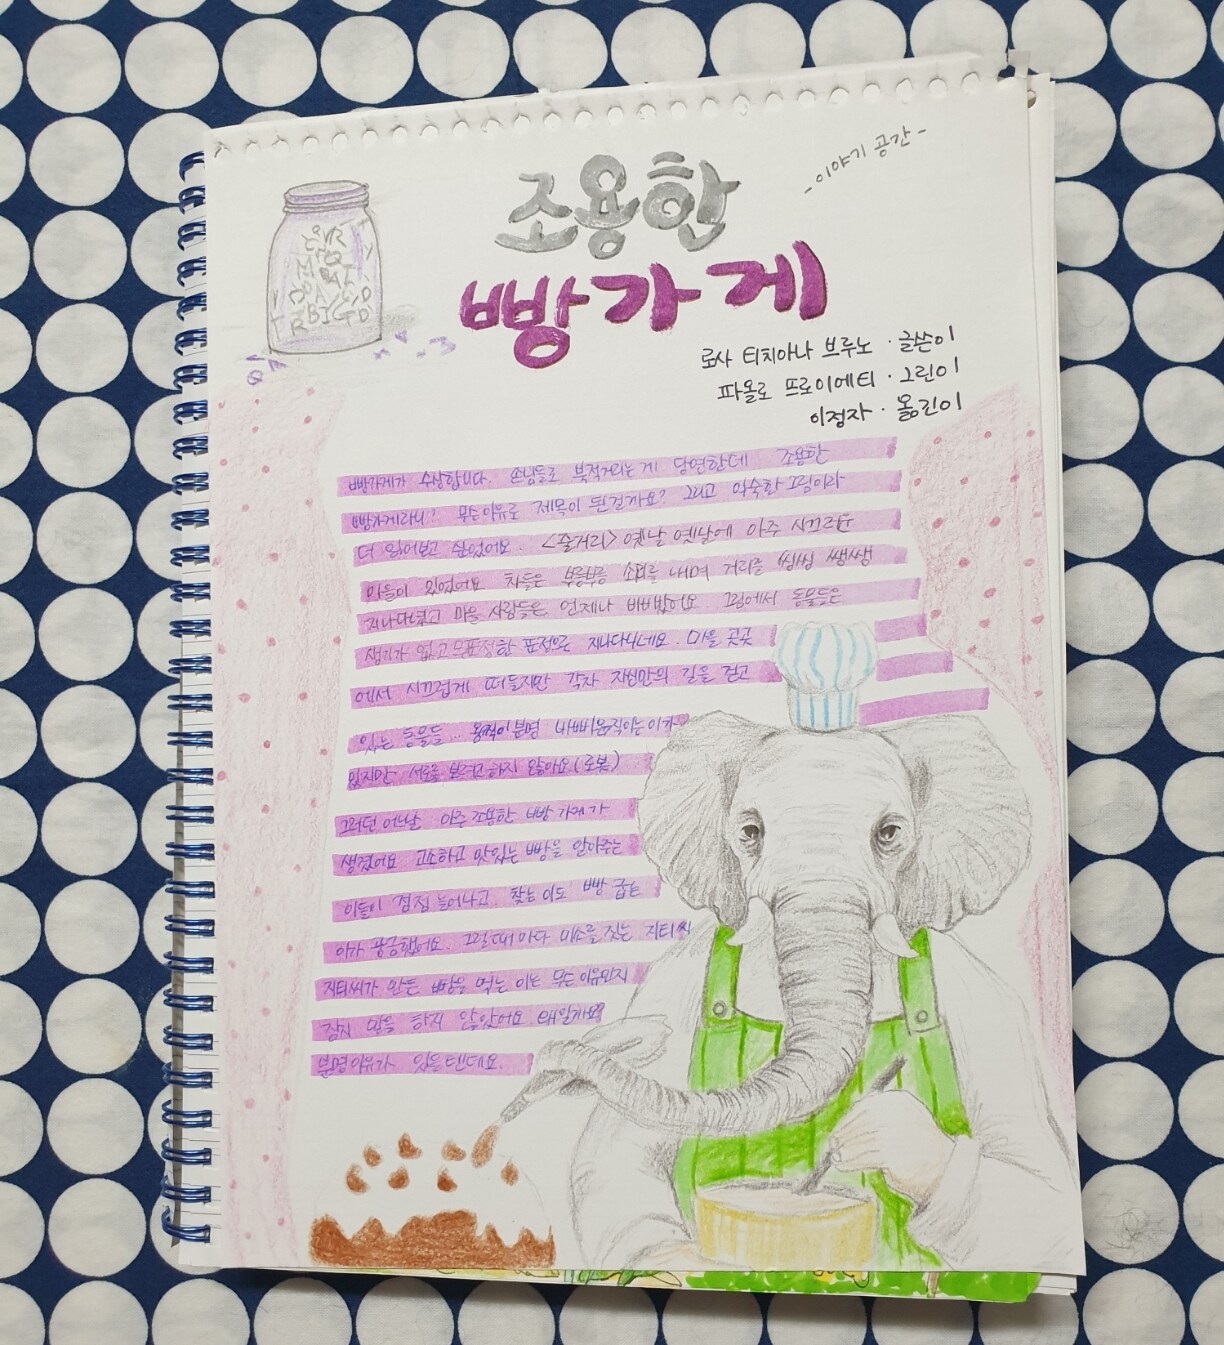 -이야기 공간-
조용한
빵가게
로사 티치아나 브루노 · 글쓴이
파올로 프로이에티 · 그린이
이정자 · 옮긴이
빵가게가 수상합니다. 손님들로 북적거리는게 당연한데 조용한
빵가게라니? 무슨이유로 제목이 된걸까요? 그리고 익숙한 그림이라
더 읽어보고 싶었어요. <줄거리> 옛날 옛날에 아주 시끄러운
마을이 있었어요 차들은 부릉부릉 소리를 내며 거리를 씽씽 쌩쌩
지나다녔고 마을 사람들은 언제나 바빴어요. 그림에서 동물들은
생기가 없고 무표정한 표정으로 지나다니네요. 마을 곳곳
에서 시끄럽게 떠들지만 각자 자신만의 길을 걷고
있는 동물들.. 용책이 분명 바삐 움직이는 이가
있지만 서로를 보려고 하지 않아요(로봇)
그러던 어느날 아주 조용한 빵 가게가
생겼어요 고소하고 맛있는 빵을 알아주는
이들이 점점 늘어나고. 찾는 이도 빵 굽는
이가 궁금했어요. 그럴때마다 미소를 짓는 지티씨
지티씨가 만든 빵을 먹는 이는 무슨 이유인지
잠시 말을 하지 않았어요. 왜일까요?
분명 이유가 있을텐데요.